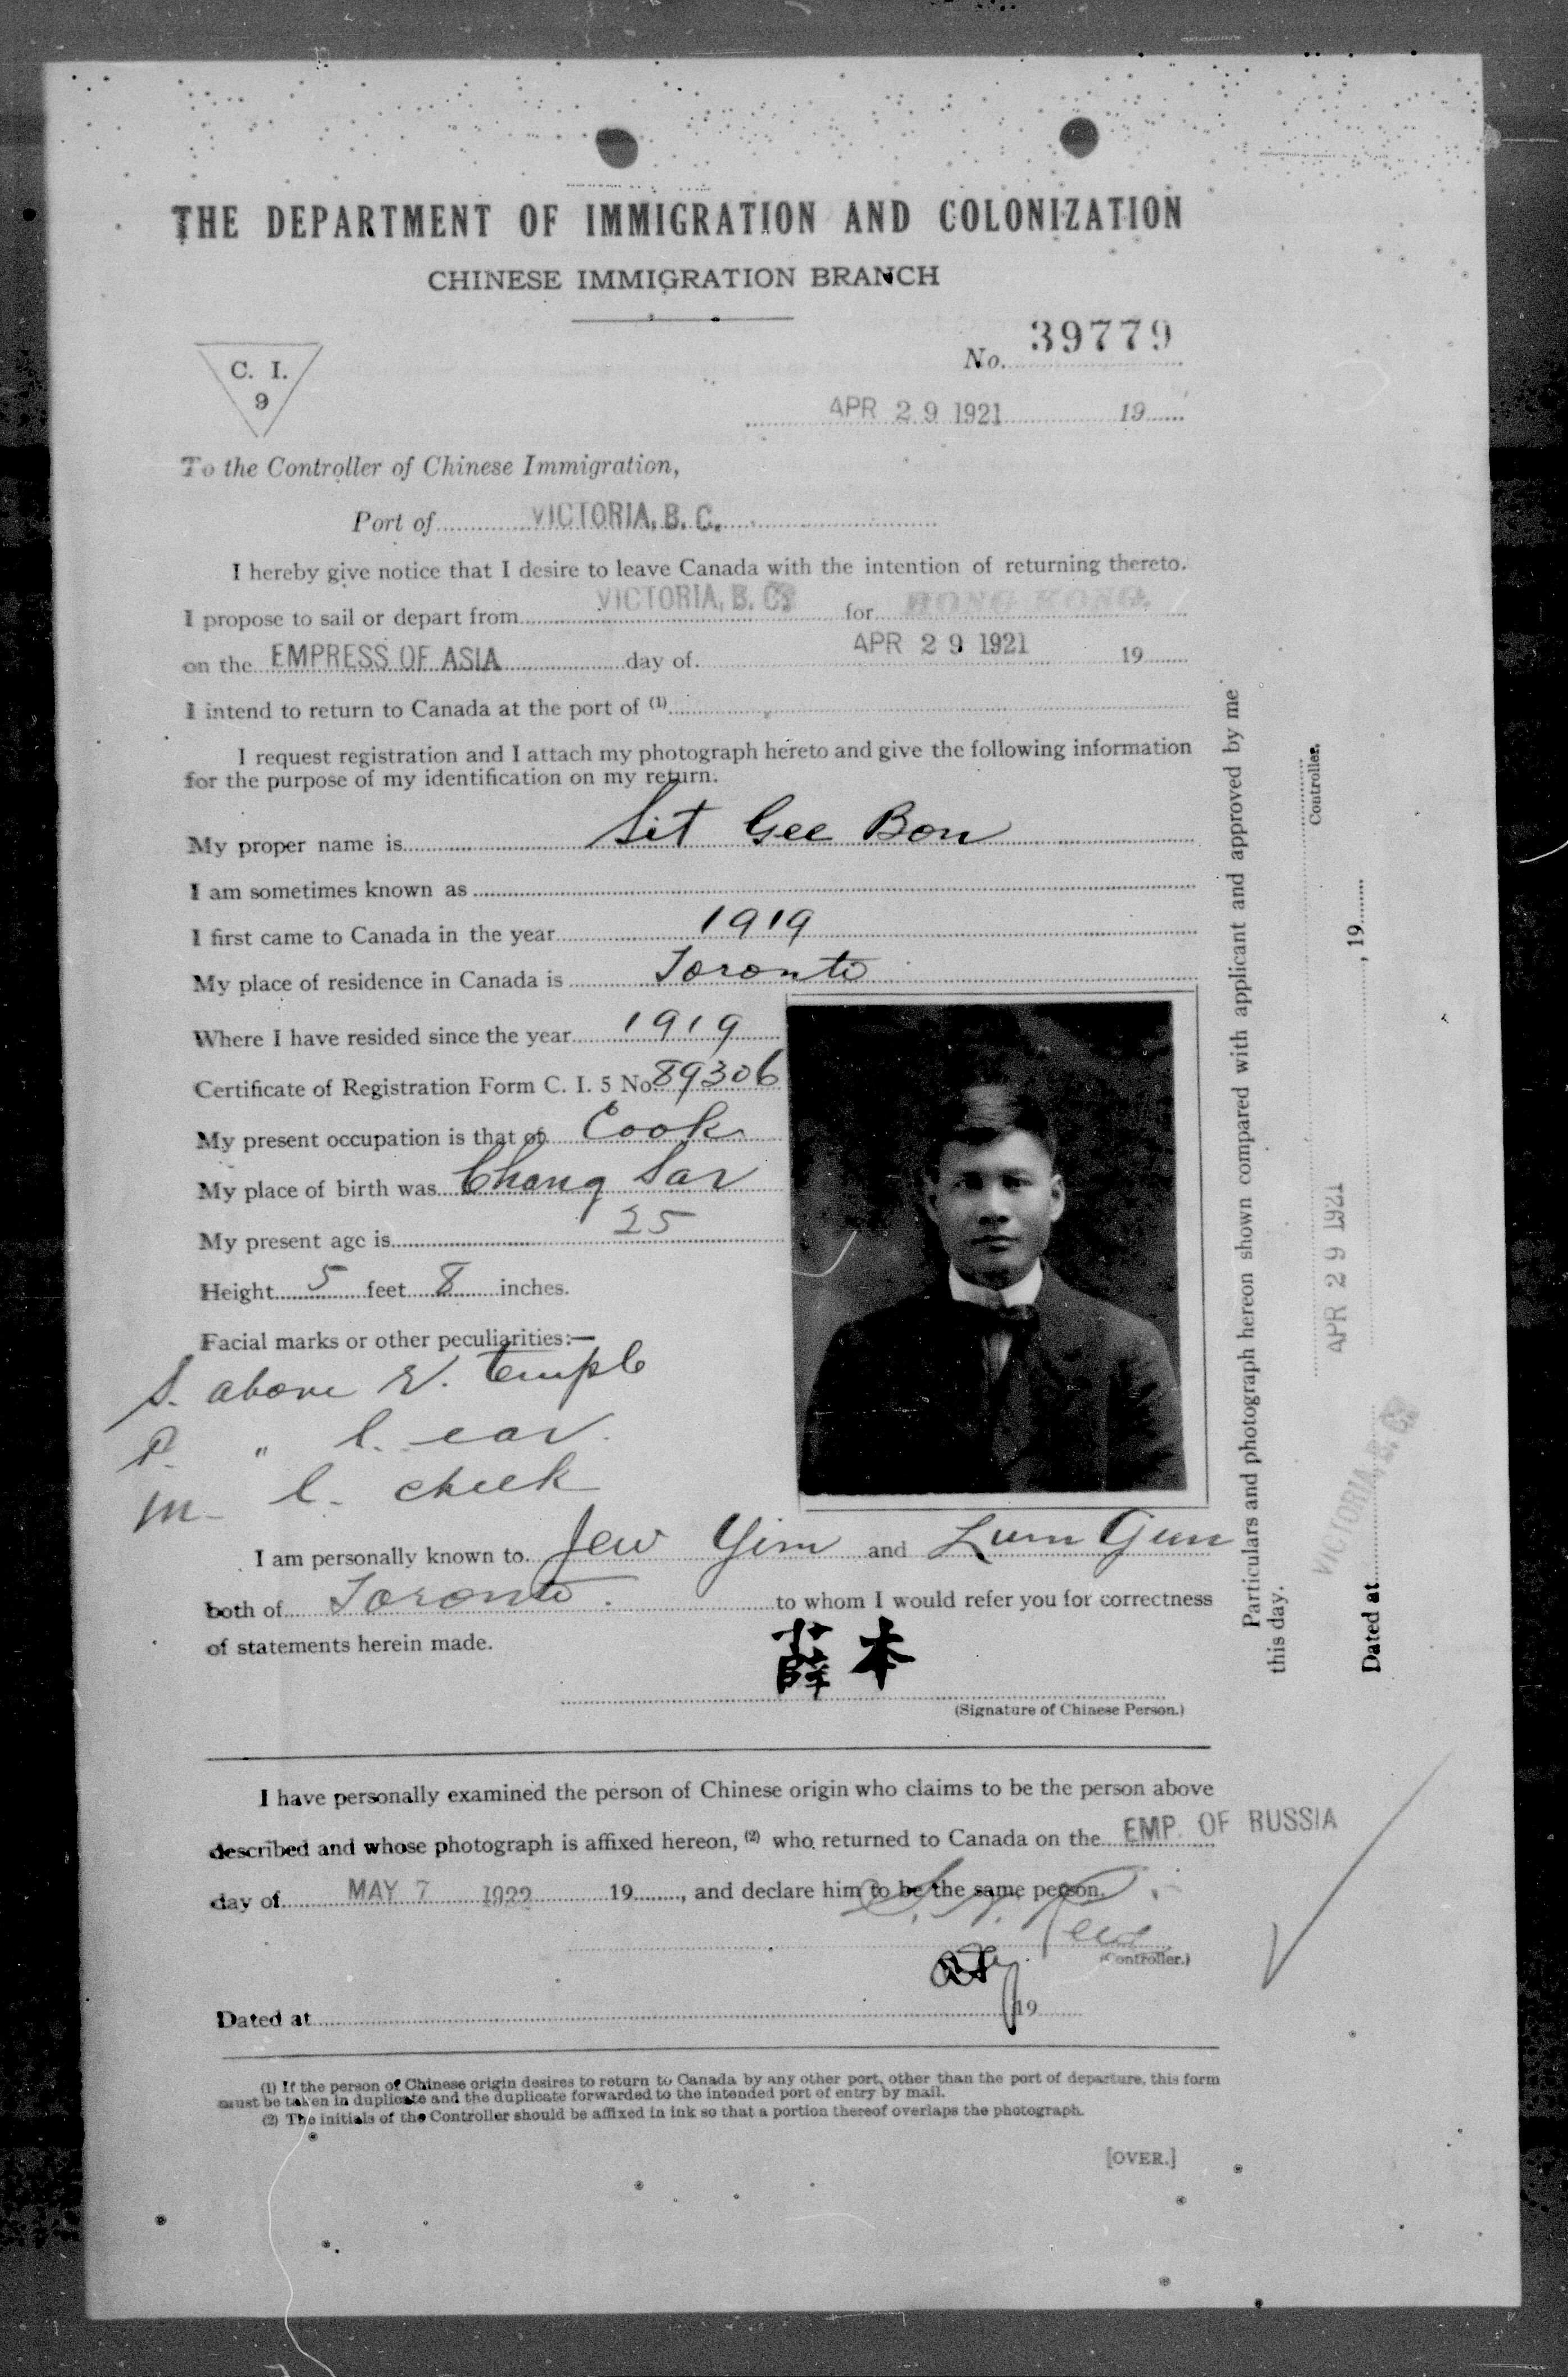 THE DEPARTMENT OF IMMIGRATION AND COLONIZATION
CHINESE IMMIGRATION BRANCH
No. 39779
C. I.
9
APR 29 1921 19
To the Controller of Chinese Immigration,
Port of VICTORIA, B. C.
I hereby give notice that I desire to leave Canada with the intention of returning thereto.
I propose to sail or depart from VICTORIA, B. C. for HONG KONG.
on the EMPRESS OF ASIA day of APR 29 1921 19
I intend to return to Canada at the port of (1)
I request registration and I attach my photograph hereto and give the following information
for the purpose of my identification on my return.
My proper name is Sit Gee Bon
I am sometimes known as
I first came to Canada in the year 1919
My place of residence in Canada is Toronto
Where I have resided since the year 1919
Certificate of Registration Form C. I. 5 No. 89306
My present occupation is that of Cook
My place of birth was Chang Sar
My present age is 25
Height 5 feet 8 inches.
Facial marks or other peculiarities:—
S. above r. temple
P. " l. ear.
m- l. cheek
I am personally known to Jew Yim and Lum Gun
both of Toronto. to whom I would refer you for correctness
of statements herein made.
薛本
(Signature of Chinese Person.)
I have personally examined the person of Chinese origin who claims to be the person above
described and whose photograph is affixed hereon, (2) who returned to Canada on the EMP. OF RUSSIA
day of MAY 7 1922 19, and declare him to be the same person.
(Controller.)
Dated at 19
(1) If the person of Chinese origin desires to return to Canada by any other port, other than the port of departure, this form
must be taken in duplicate and the duplicate forwarded to the intended port of entry by mail.
(2) The initials of the Controller should be affixed in ink so that a portion thereof overlaps the photograph.
[OVER.]
Particulars and photograph hereon shown compared with applicant and approved by me
this day.
APR 29 1921
Controller.
Dated at VICTORIA, B. C. , 19